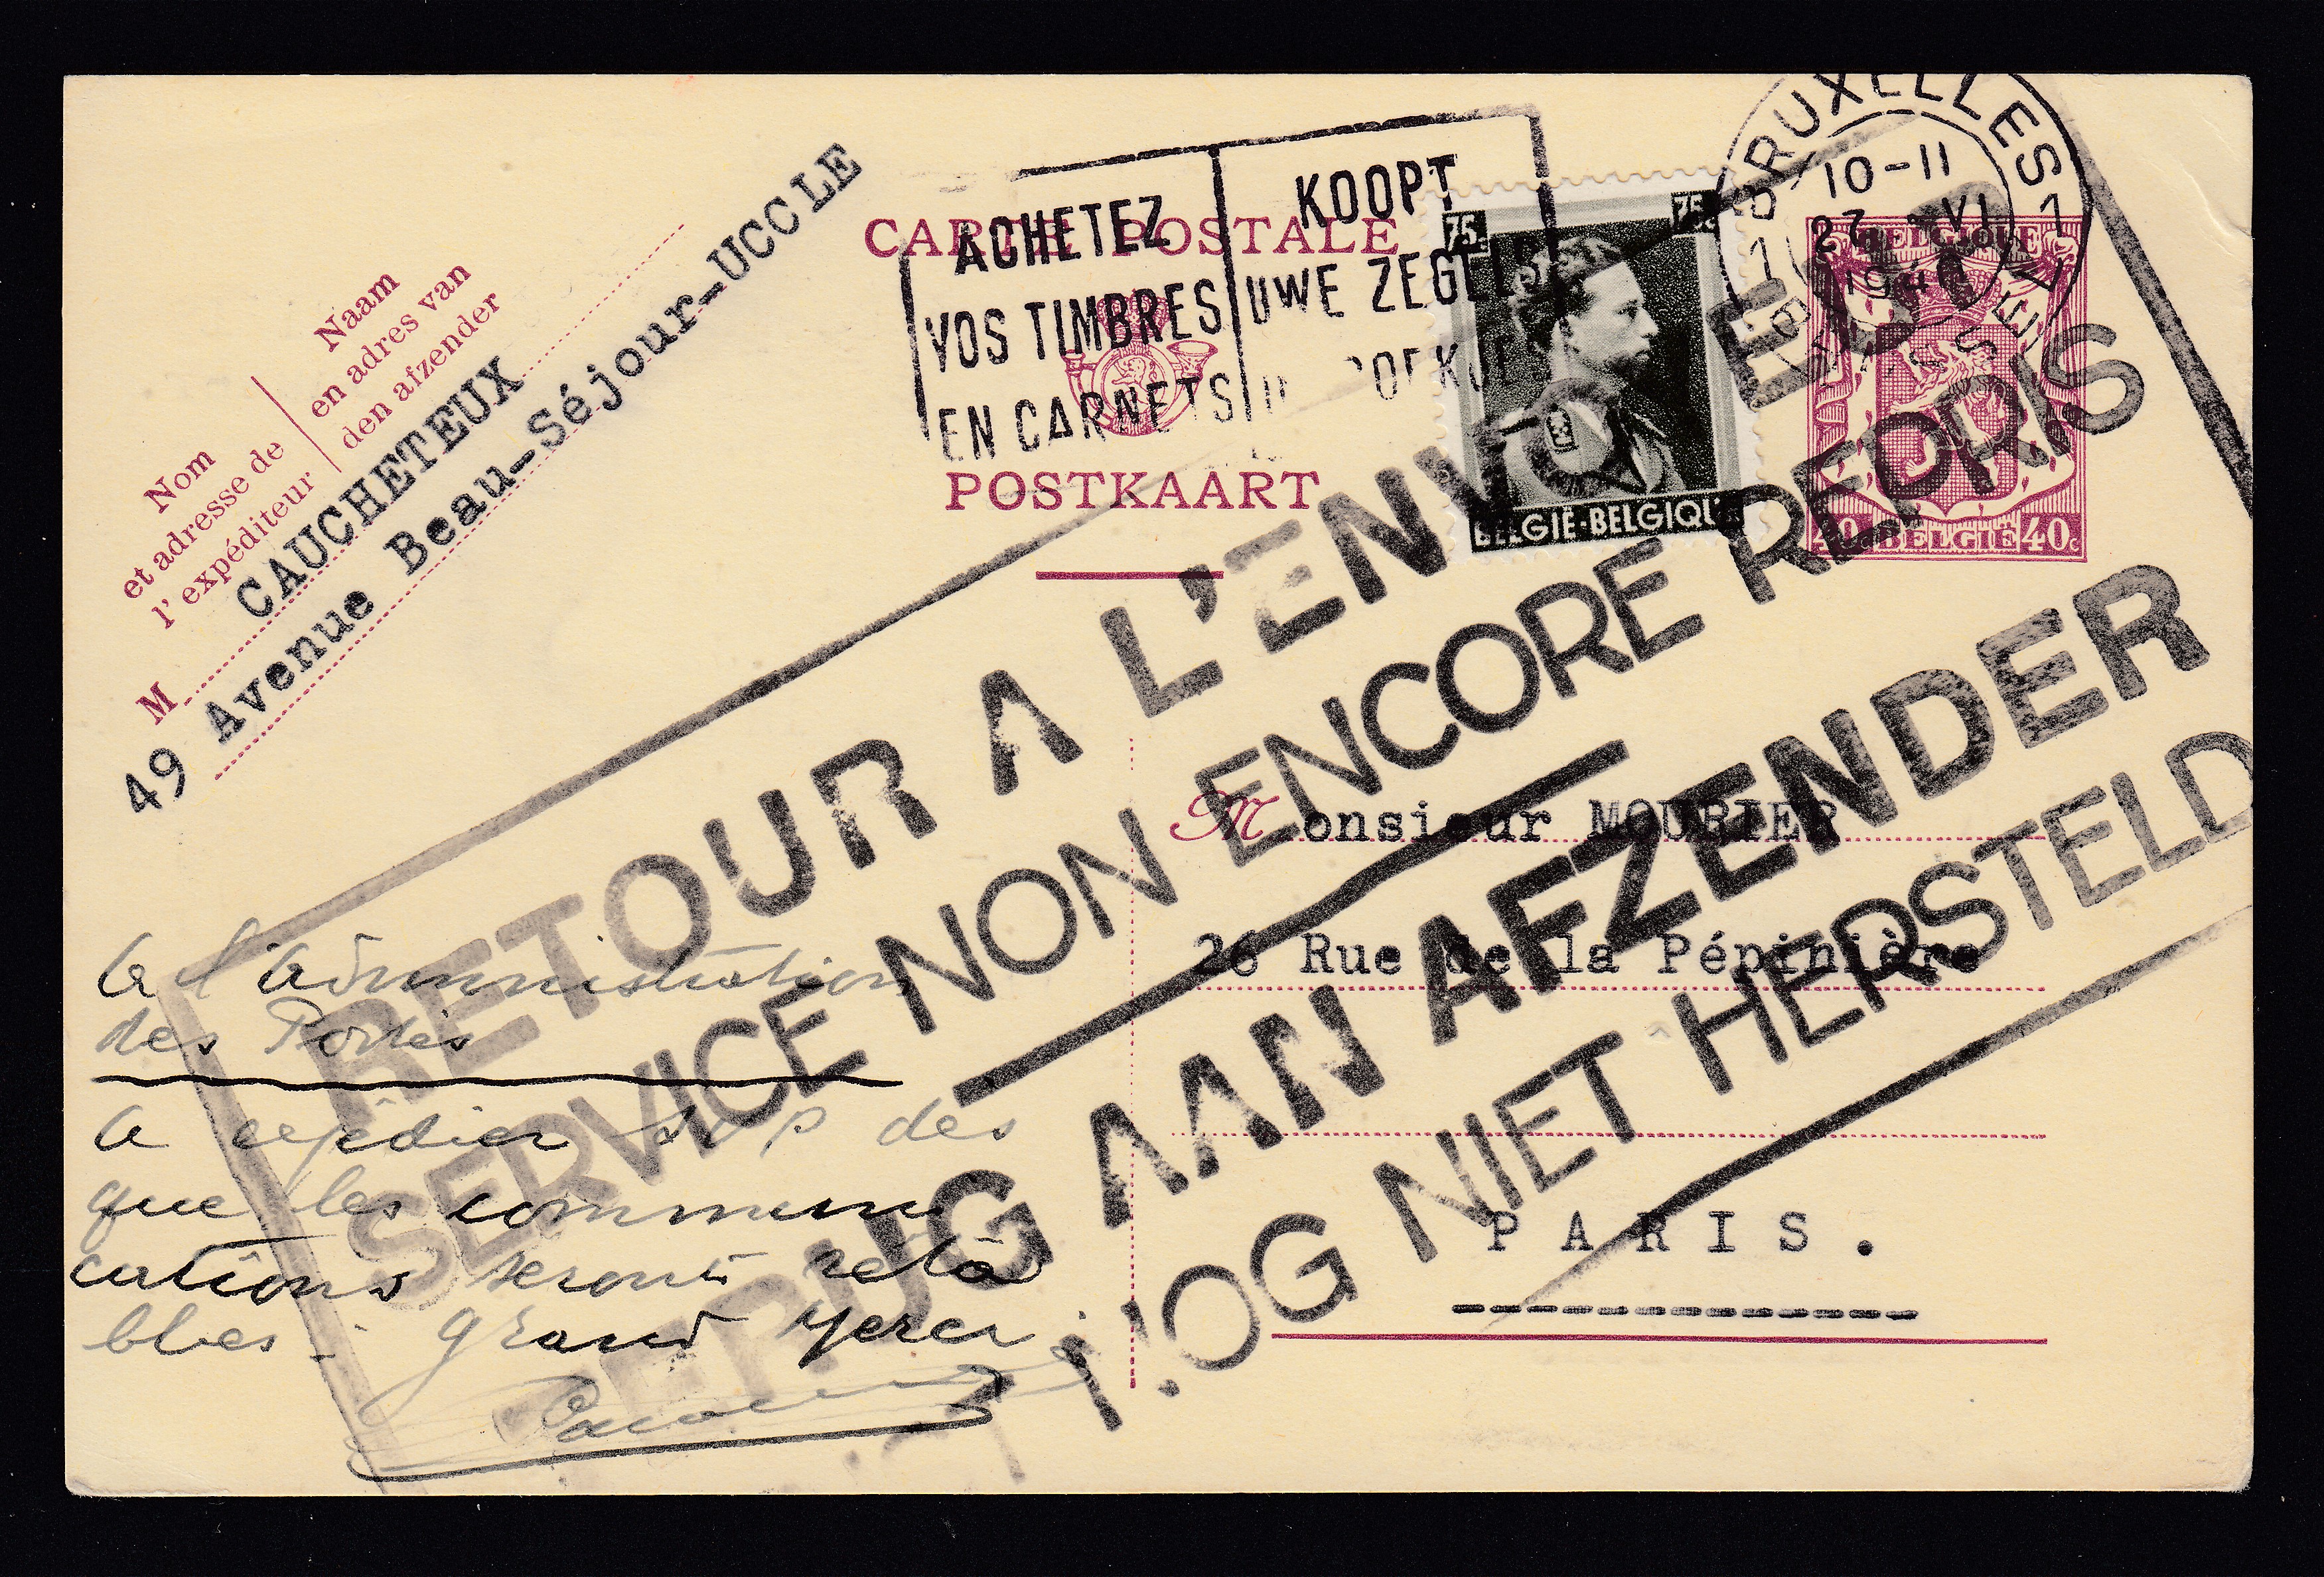 CARTE POSTALE
POSTKAART
Nom
et adresse de
l'expéditeur
Naam
en adres van
den afzender
M CAUCHETEUX
49 Avenue Beau-Séjour-UCCLE
ACHETEZ
VOS TIMBRES
EN CARNETS
KOOPT
UWE ZEGELS
75c 75c
BELGIË-BELGIQUE
BRUXELLES 1
10-11
27 VI
194
BRUSSEL
BELGIQUE
40c BELGIE 40c
RETOUR A L'ENVOYEUR
SERVICE NON ENCORE REPRIS
TERUG AAN AFZENDER
NOG NIET HERSTELD
Monsieur MOURIER
26 Rue de la Pépinière
PARIS.
a l'administration
des Postes
a expédier SVP des
que les communi
cations seront réta
blies : grand merci